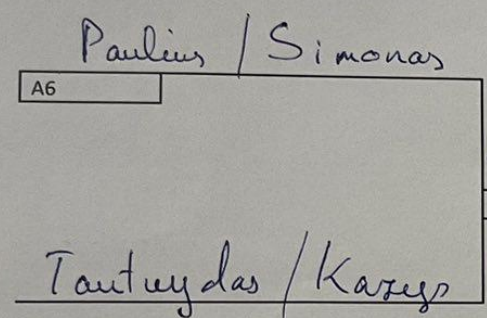 Paulius / Simonas
A6
Tautvydas / Kazys